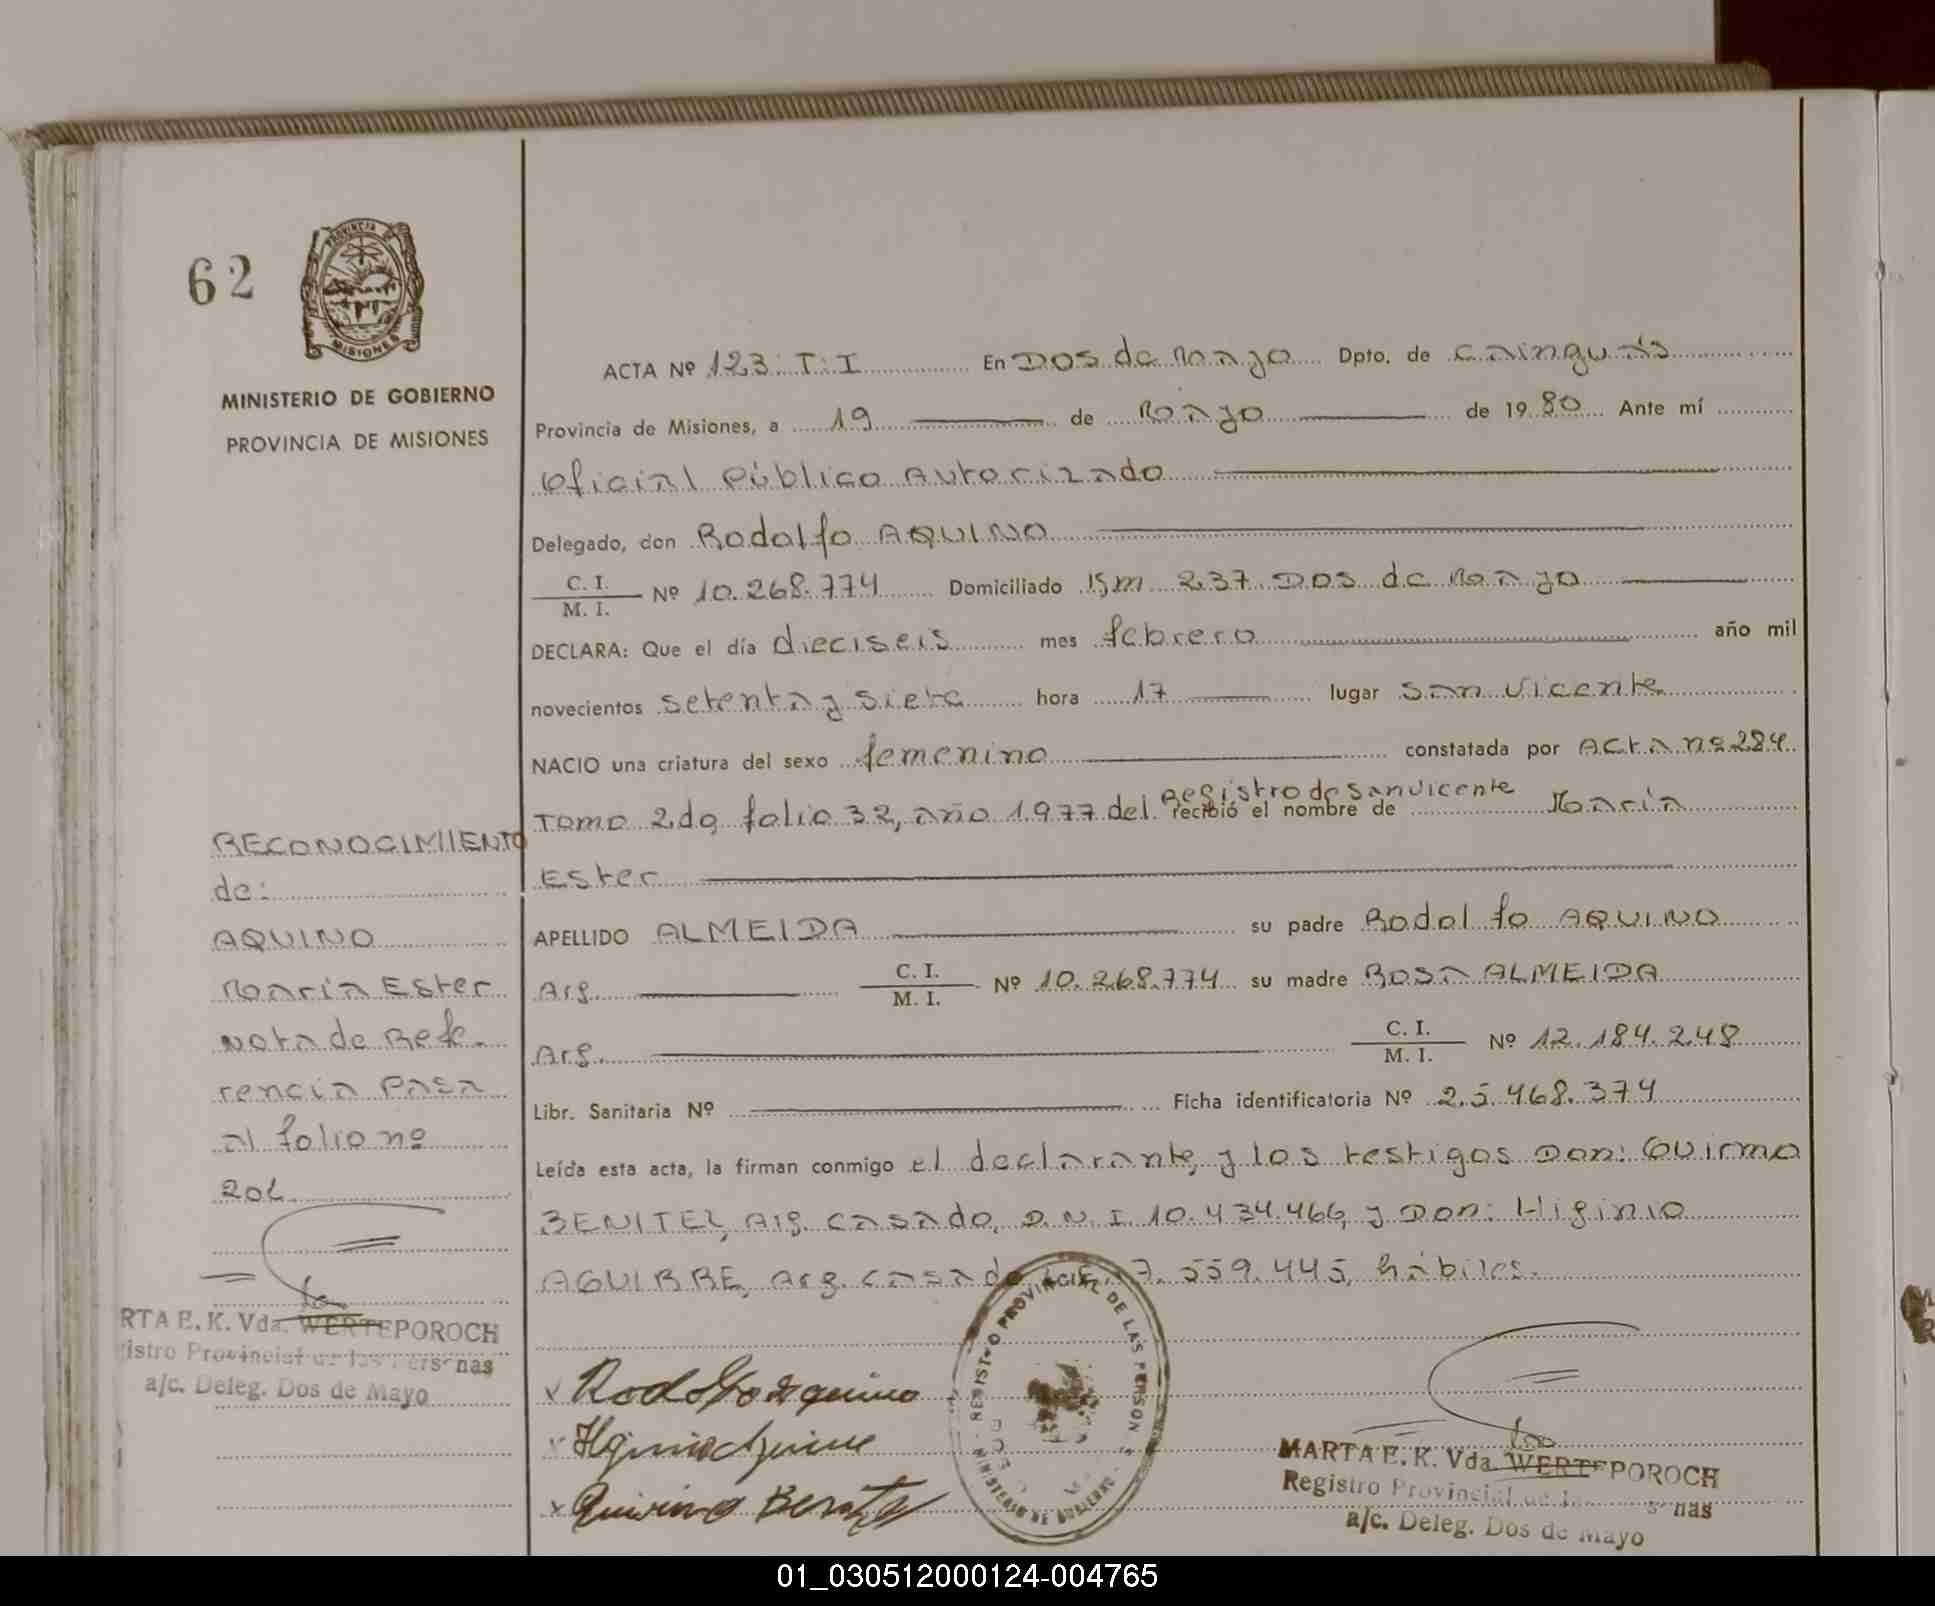 62
PROVINCIA DE
MISIONES
MINISTERIO DE GOBIERNO
PROVINCIA DE MISIONES
ACTA Nº 123. T: I En Dos de Mayo Dpto. de Cainguás
Provincia de Misiones, a 19 de Mayo de 1980 Ante mí
Oficial Público Autorizado
Delegado, don Rodolfo AQUINO
C. I.
M. I. Nº 10.268.774 Domiciliado 237 Dos de Mayo
DECLARA: Que el día dieciseis mes febrero año mil
novecientos setenta y siete hora 17 lugar San Vicente
NACIO una criatura del sexo femenino constatada por Acta nº 284
Tomo 2do folio 32, año 1977 del Registro de San Vicente recibió el nombre de María
Ester
APELLIDO ALMEIDA su padre Rodolfo AQUINO
Arg. C. I.
M. I. Nº 10.268.774 su madre Rosa ALMEIDA
Arg. C. I.
M. I. Nº 12.184.248
Libr. Sanitaria Nº Ficha identificatoria Nº 25.468.374
Leída esta acta, la firman conmigo el declarante, y los testigos Don:
BENITEZ, Arg. casado, D.N.I. 10.434.466, y Don: Higinio
AGUIRRE, Arg. casado 7.559.445, hábiles.
RECONOCIMIIENTO
de:
AQUINO
María Ester
Nota de Refe-
rencia Pasa
al folio nº
201
RTA E. K. Vda. WERTEPOROCH
istro Provincial de las Personas
a/c. Deleg. Dos de Mayo
x Rodolfo Aquino
x Higinio Aguirre
x Quirino Benitez
REGISTRO PROVINCIAL DE LAS PERSONAS
MINISTERIO DE GOBIERNO
MARTA E. K. Vda. WERTEPOROCH
Registro Provincial de las nas
a/c. Deleg. Dos de Mayo
01_030512000124-004765